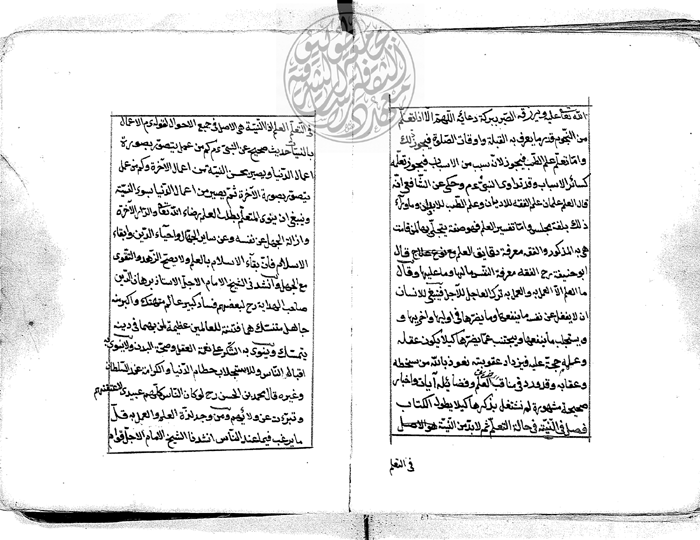 الله تعالى عليه ويرزقه الصبر ببركة دعائه اللهم الا اذا تعلم
من النجوم قدر ما يعرف به القبلة واوقات الصلوة فيجوز ذلك
واما تعلم علم الطب فيجوز لانه سبب من الاسباب فيجوز تعلمه
كسائر الاسباب وقد تداوى النبي عم وحكى عن الشافعي انه
قال العلم علمان علم الفقه للاديان وعلم الطب للابدان وما وراء
ذلك بلغة مجلس واما تفسير العلم فهو صفة يتجلى بها لمن قامت
هي به المذكور والفقه معرفة دقايق العلم مع نوع علاج قال
ابو حنيفة رح الفقه معرفة النفس ما لها وما عليها وقال
ما العلم الا العمل به والعمل به ترك العاجل للآجل فينبغي للانسان
ان لا يغفل عن نفسه ما ينفعها وما يضرها في اوليها واخريها و
يستجلب ما ينفعها ويجتنب عما يضرها كيلا يكون عقله
وعلمه حجة عليه فيزداد عقوبته نعوذ بالله من سخطه
وعقابه وقد ورد في مناقب العلم وفضائله آيات واخبار
صحيحة مشهورة لم نشتغل بذكرها كيلا يطول الكتاب
فصل في النية في حالة التعلم ثم لا بد من النية هو الاصل
في التعلم
في التعلم العلم اذ النية هو الاصل في جميع الاحوال لقوله عم الاعمال
بالنيات حديث صحيح عن النبي عم كم من عمل يتصور بصورة
اعمال الدنيا ويصير بحسن النية من اعمال الآخرة وكم من عمل
يتصور بصورة الآخرة ثم يصير من اعمال الدنيا بسوء النية
وينبغي ان ينوى المتعلم بطلب العلم رضاء الله تعالى والدار الآخرة
وازالة الجهل عن نفسه وعن ساير الجهال واحياء الدين وابقاء
الاسلام فان بقاء الاسلام بالعلم ولا يصح الزهد والتقوى
مع الجهل وانشد في الشيخ الامام الاجل الاستاذ برهان الدين
صاحب الهداية رح لبعضهم فساد كبير عالم متهتك واكبر منه
جاهل متنسك هما فتنة للعالمين عظيمة لمن بهما في دينه
يتمسك وينوى به الشكر على نعمة العقل وصحة البدن ولا ينوى به
اقبال الناس ولا استجلاب حطام الدنيا والكرامة عند السلطان
وغيره قال محمد بن الحسن رح لو كان الناس كلهم عبيدى لاعتقتهم
وتبرئت عن ولائهم ومن وجد لذة العلم والعمل به قل
ما يرغب فيما عند الناس انشدنا الشيخ الامام الاجل قوام